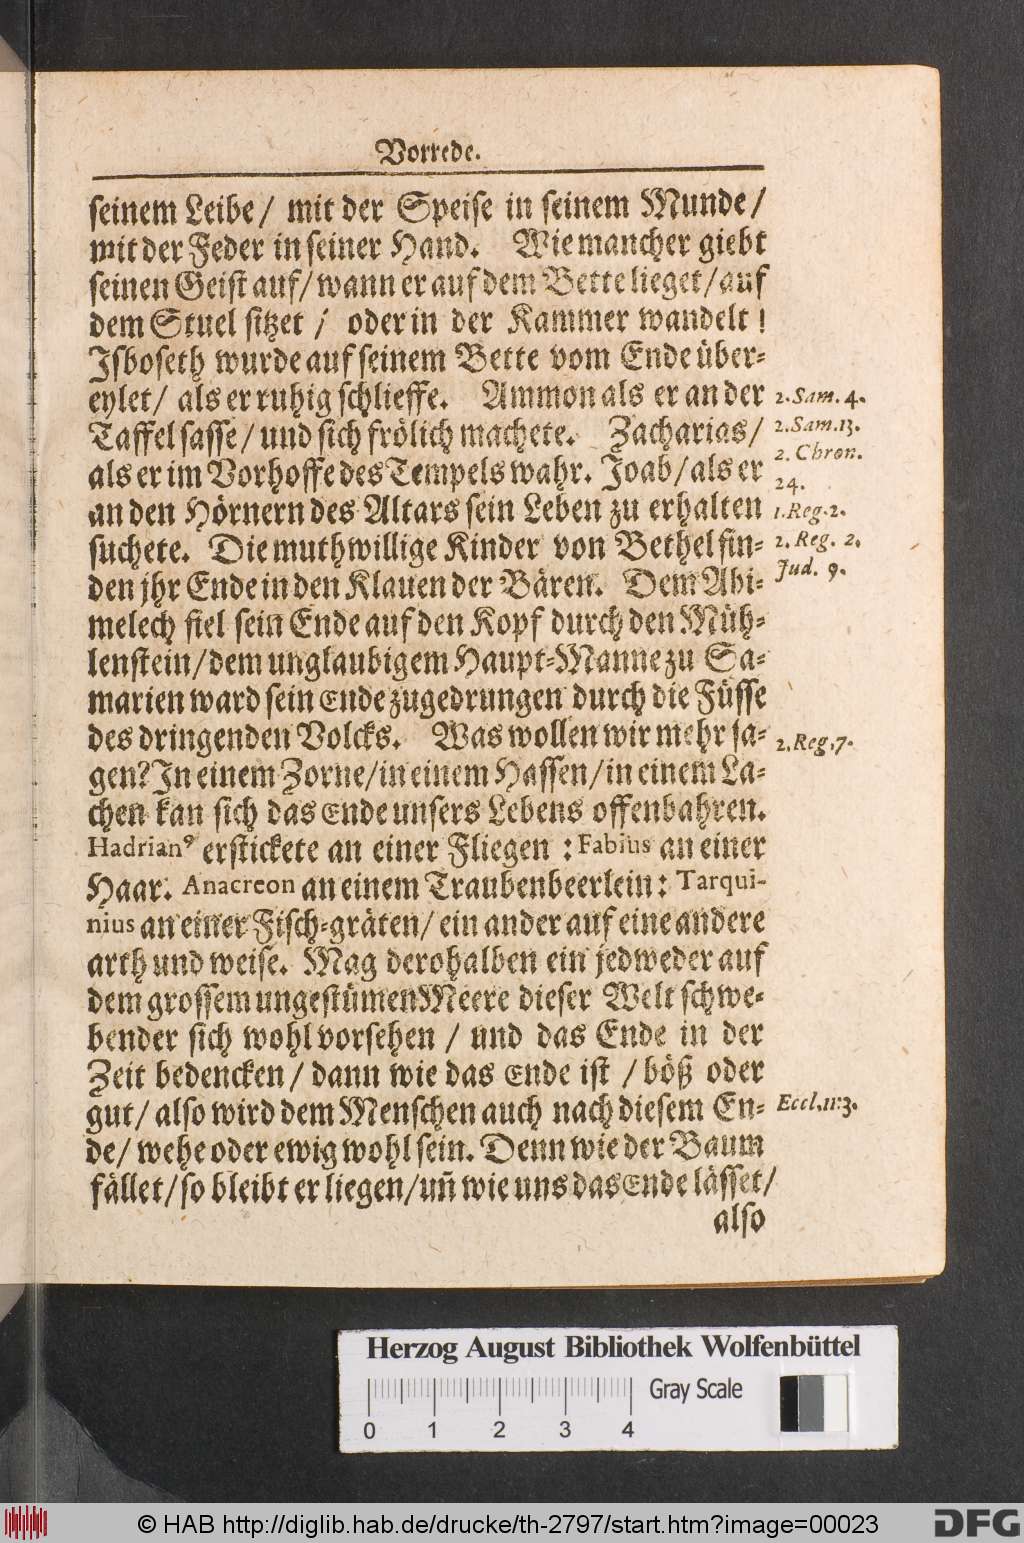 Vorrede.
seinem Leibe/ mit der Speise in seinem Munde/
mit der Feder in seiner Hand. Wie mancher giebt
seinen Geist auf/ wann er auf dem Bette lieget/ auf
dem Stuel sitzet / oder in der Kammer wandelt !
Isboseth wurde auf seinem Bette vom Ende über-
eylet/ als er ruhig schlieffe. Ammon als er an der
2. Sam. 4.
Taffel sasse/ und sich frölich machete. Zacharias/
2. Sam. 13.
als er im Vorhoffe des Tempels wahr. Joab/ als er
2. Chron.
24.
an den Hörnern des Altars sein Leben zu erhalten
1. Reg. 2.
suchete. Die muthwillige Kinder von Bethel fin-
2. Reg. 2.
den jhr Ende in den Klauen der Bären. Dem Abi-
Jud. 9.
melech fiel sein Ende auf den Kopf durch den Müh-
lenstein/ dem unglaubigem Haupt-Manne zu Sa-
marien ward sein Ende zugedrungen durch die Füsse
des dringenden Volcks. Was wollen wir mehr sa-
2. Reg. 7.
gen? In einem Zorne/ in einem Hassen/ in einem La-
chen kan sich das Ende unsers Lebens offenbahren.
Hadrianꝰ erstickete an einer Fliegen : Fabius an einer
Haar. Anacreon an einem Traubenbeerlein: Tarqui-
nius an einer Fisch-gräten/ ein ander auf eine andere
arth und weise. Mag derohalben ein jedweder auf
dem grossem ungestümen Meere dieser Welt schwe-
bender sich wohl vorsehen / und das Ende in der
Zeit bedencken/ dann wie das Ende ist / böß oder
gut/ also wird dem Menschen auch nach diesem En-
Eccl. 11: 3.
de/ wehe oder ewig wohl sein. Denn wie der Baum
fället/ so bleibt er liegen/ uñ wie uns das Ende lässet/
also
Herzog August Bibliothek Wolfenbüttel
Gray Scale
0 1 2 3 4
© HAB http://diglib.hab.de/drucke/th-2797/start.htm?image=00023
DFG